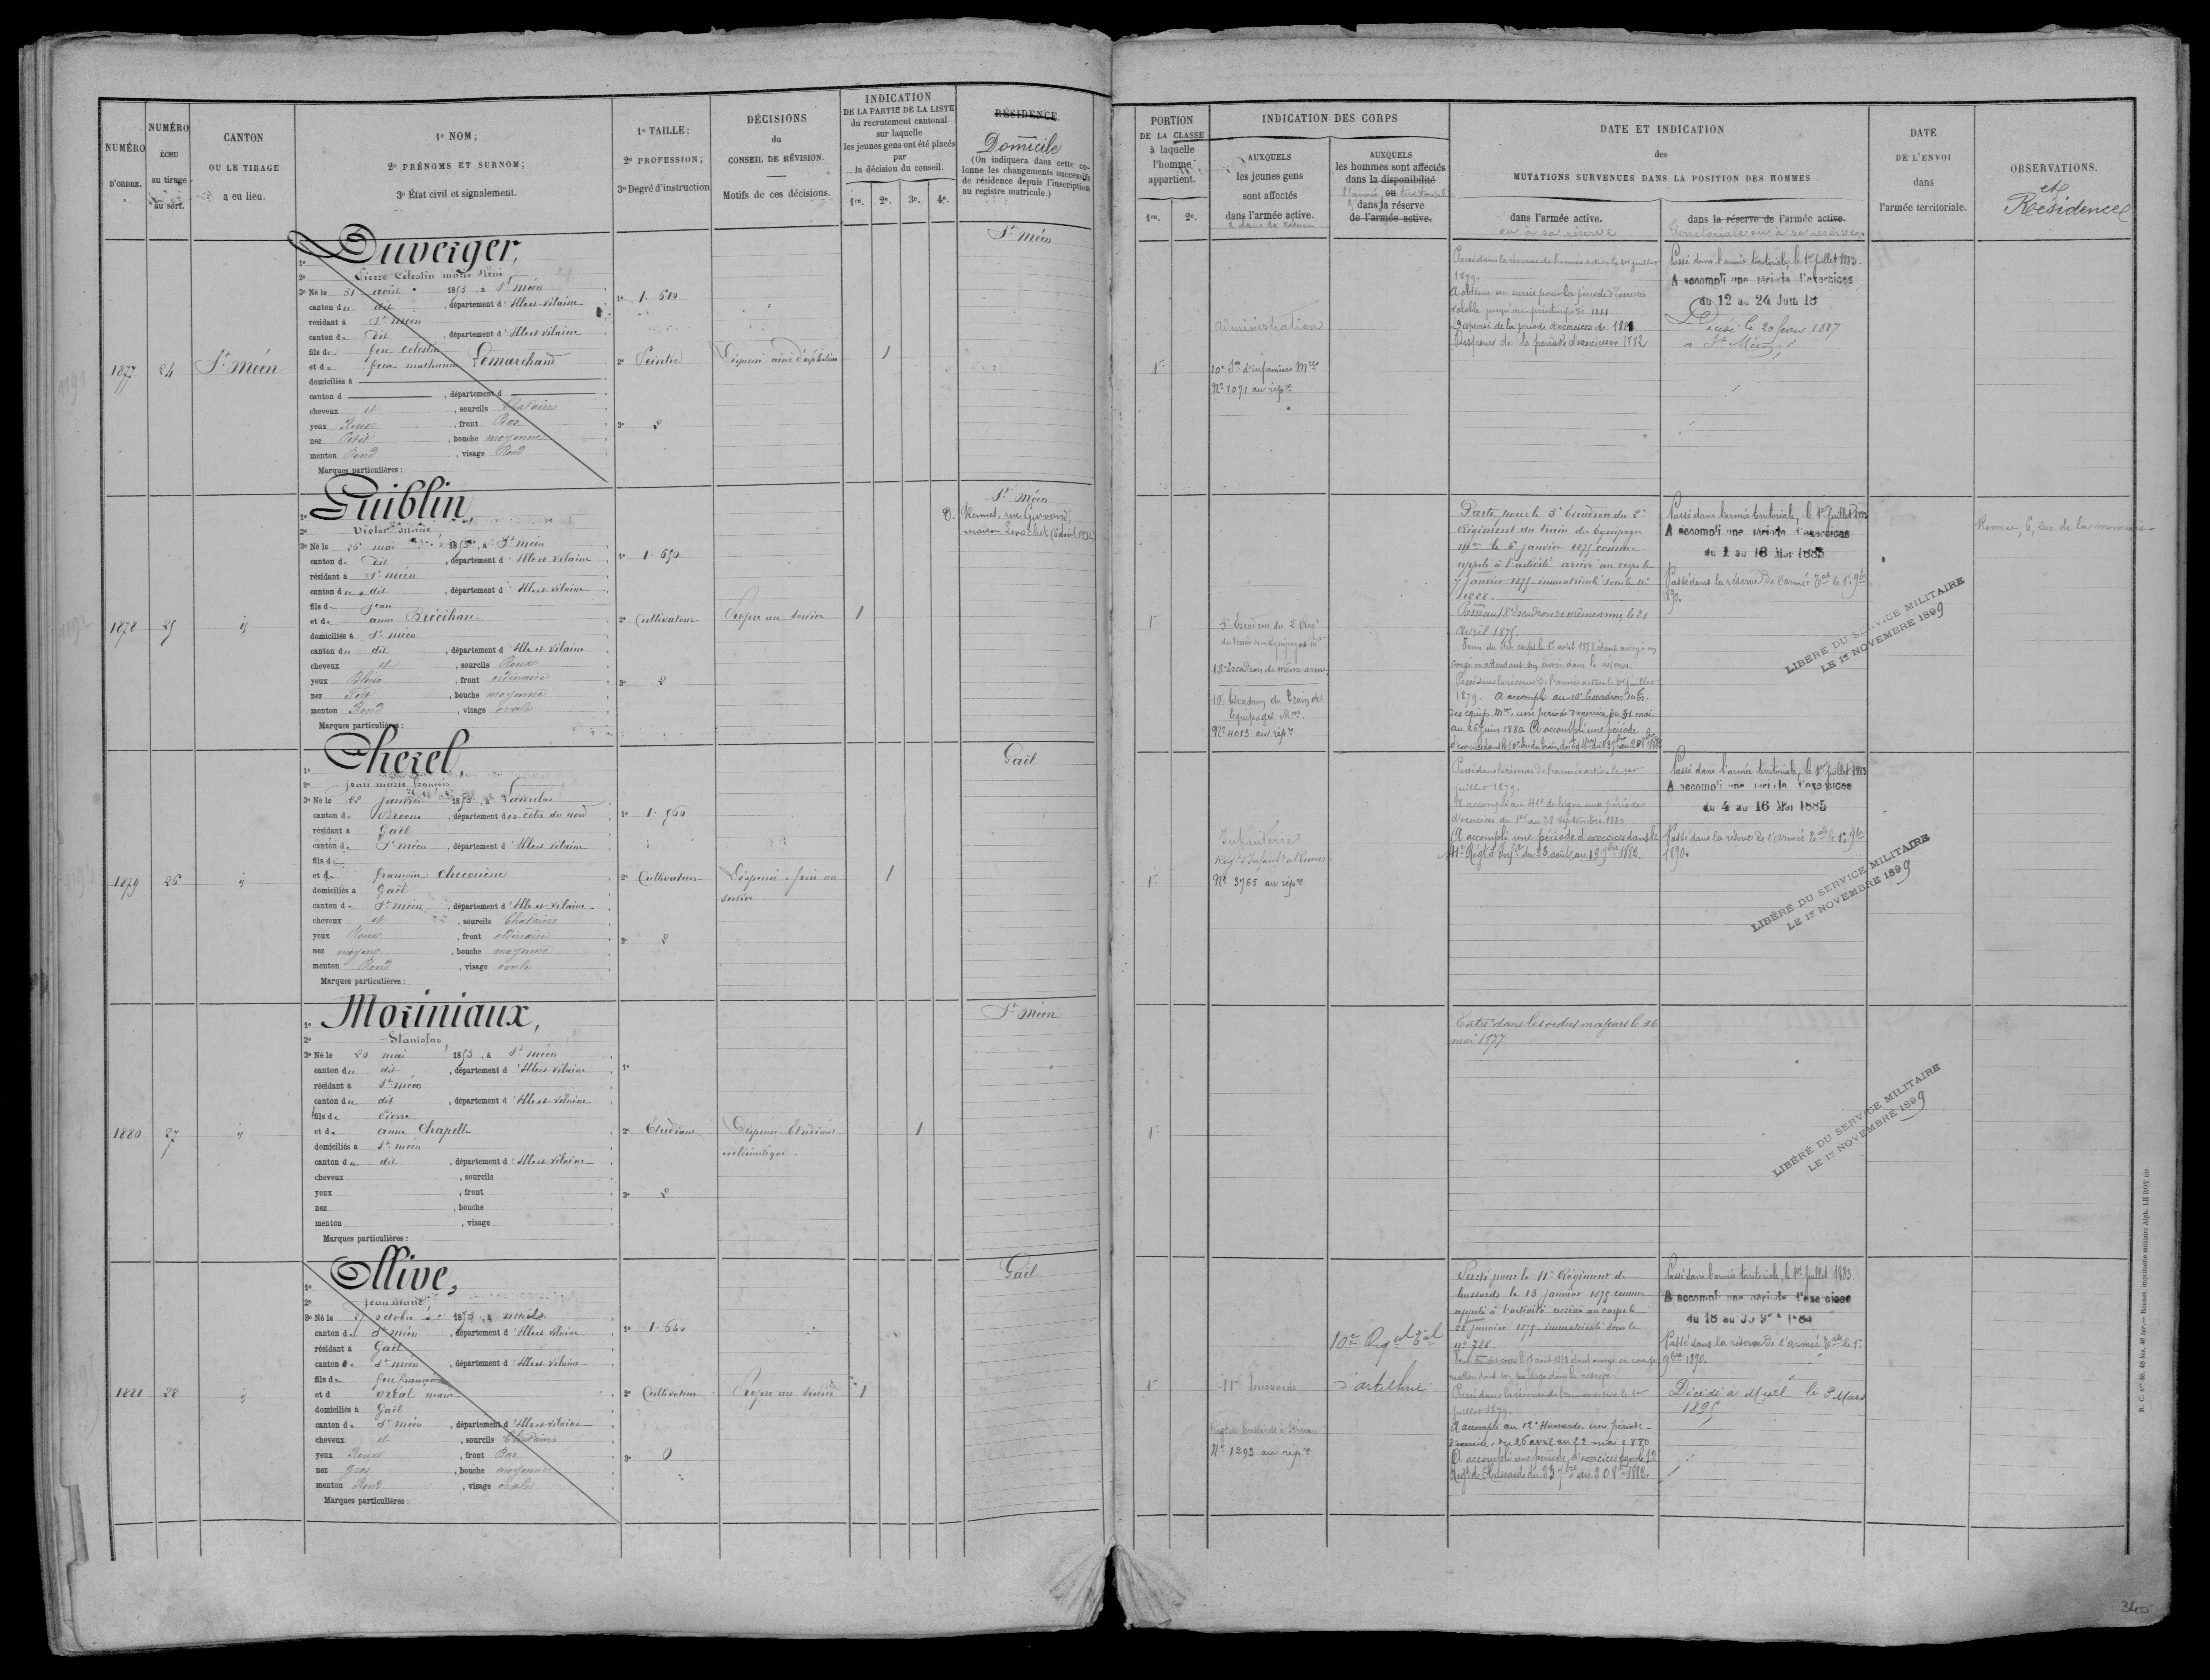 NUMÉRO
D'ORDRE.
NUMÉRO
ÉCHU
au tirage
au sort.
CANTON
OU LE TIRAGE
a eu lieu.
1º NOM;
2º PRÉNOMS ET SURNOM;
3º État civil et signalement.
1º TAILLE;
2º PROFESSION;
3º Degré d'instruction
DÉCISIONS
du
CONSEIL DE RÉVISION.
Motifs de ces décisions.
INDICATION
DE LA PARTIE DE LA LISTE
du recrutement cantonal
sur laquelle
les jeunes gens ont été placés
par
la décision du conseil.
1re. 2e. 3e. 4e.
RÉSIDENCE
Domicile
(On indiquera dans cette co-
lonne les changements successifs
de résidence depuis l'inscription
au registre matricule.)
PORTION
DE LA CLASSE
à laquelle
l'homme
appartient.
1re. 2e.
INDICATION DES CORPS
AUXQUELS
les jeunes gens
sont affectés
dans l'armée active.
& dans la réserve
AUXQUELS
les hommes sont affectés
dans la disponibilité
l'armée ou territoriale
dans la réserve
de l'armée active.
DATE ET INDICATION
des
MUTATIONS SURVENUES DANS LA POSITION DES HOMMES
dans l'armée active.
ou à sa réserve
dans la réserve de l'armée active.
territoriale ou à sa réserve
DATE
DE L'ENVOI
dans
l'armée territoriale.
OBSERVATIONS.
et
Résidence
1877
24
St Méen
1º Duverger,
2º Pierre Célestin marie René
3º Né le 31 août 1853, à St méen
canton du dit, département d'Ille et vilaine
résidant à St méen
canton du dit, département d'Ille et vilaine
fils de feu Celestin
et de feue mathurine Lemarchand
domiciliés à
canton d , département d
cheveux et , sourcils Chatains
yeux Roux , front Bas
nez Petit , bouche moyenne
menton Rond , visage Rond
Marques particulières :
1º 1. 610
2º Peintre
3º 2
Dispensé ainé d'orphelins
1
St Méen
1re
administration
10e Son d'infirmiers Mres
No 1071 au répre
Passé dans la réserve de l'armée active le 1er juillet
1879.
A obtenu un sursis pour la période d'exercices
valable jusqu'au printemps de 1881
Dispensé de la période d'exercices de 1881
Dispensé de la période d'exercices 1882
Passé dans l'armée territoriale, le 1er juillet 1883.
A accompli une période d'exercices
du 12 au 24 Juin 18
Décédé le 20 février 1887
à St Méen
1878
25
id
1º Guiblin
2º Victor marie
3º Né le 26 mai 1853, à St méen
canton de dit , département d'Ille et vilaine
résidant à St méen
canton du dit , département d'Ille et vilaine
fils de Jean
et de anne Brécihan
domiciliés à St méen
canton du dit , département d'Ille et vilaine
cheveux et , sourcils Roux
yeux Bleus , front ordinaire
nez Fort , bouche moyenne
menton Rond , visage ovale
Marques particulières :
1º 1. 650
2º Cultivateur
3º 2
Propre au service
1
St Méen
D. Rennes, rue Gurvand,
1re
3e Escadron du 2e Regt
du train des Equipages Mres
18e Escadron de même arme
10e Escadron du Train des
Equipages Mres.
No 4013 au répre
Parti pour le 3e Escadron du 2e
Régiment du train des Equipages
Mres le 6 janvier 1875 comme
appelé à l'activité arrivé au corps le
7 janvier 1875. immatriculé sous le No
1288.
Passé au 18e Escadron de même arme, le 21
avril 1875.
congé en attendant son envoi dans la réserve.
Passé dans la réserve de l'armée active le 1er juillet
1879. A accompli au 10e Escadron du Tr.
des équip. Mres, une période d'exercices, du 31 mai
au 26 juin 1880. A accompli une période
Passé dans l'armée territoriale, le 1er juillet 1883
A accompli une période d'exercices
du 4 au 16 Mai 1885
Passé dans la réserve de l'armée Tale le 1er 9bre
1890.
LIBÉRÉ DU SERVICE MILITAIRE
LE 1er NOVEMBRE 1899
Rennes, 6, rue de la monnaie
1879
26
id
1º Cherel,
2º Jean marie françois
3º Né le 22 janvier 1853, à Lanrelas
canton de Broons , département des côtes du nord
résidant à Gaël
canton de St méen , département d'Ille et vilaine
fils de
et de françoise Checouëne
domiciliés à Gaël
canton de St méen , département d'Ille et vilaine
cheveux et , sourcils Chatains
yeux Roux , front ordinaire
nez moyen , bouche moyenne
menton Rond , visage ovale
Marques particulières :
1º 1. 560
2º Cultivateur
3º 2
Dispensé. frère au
service
1
Gaël
1re
Infanterie
Regt d'Infante à Rennes
No 3765 au répre
Passé dans la réserve de l'armée active le 1er
juillet 1879.
A accompli au 41e de ligne une période
d'exercices du 1er au 28 septembre 1880
A accompli une période d'exercices dans le
41e Régt d'Infie du 23 août au 19 7bre 1882.
Passé dans l'armée territoriale, le 1er juillet 1883
A accompli une période d'exercices
du 4 au 16 Mai 1885
Passé dans la réserve de l'armée Tale le 1er 9bre
1890.
LIBÉRÉ DU SERVICE MILITAIRE
LE 1er NOVEMBRE 1899
1880
27
id
1º Moriniaux,
2º Stanislas
3º Né le 20 mai 1853, à St méen
canton du dit , département d'Ille et vilaine
résidant à St méen
canton du dit , département d'Ille et vilaine
fils de Pierre
et de anne Chapelle
domiciliés à St méen
canton du dit , département d'Ille et vilaine
cheveux , sourcils
yeux , front
nez , bouche
menton , visage
Marques particulières :
1º
2º Etudiant
3º 2
Dispensé. Etudiant
ecclésiastique.
1
St Méen
1re
Entré dans les ordres majeurs le 26
mai 1877
LIBÉRÉ DU SERVICE MILITAIRE
LE 1er NOVEMBRE 1899
1881
28
id
1º Ollive,
2º Jean marie
3º Né le octobre 1853, à muel
canton de St méen , département d'Ille et vilaine
résidant à Gaël
canton de St méen , département d'Ille et vilaine
fils de feu françois
et d marie
domiciliés à Gaël
canton de St méen , département d'Ille et vilaine
cheveux et , sourcils Chatains
yeux Roux , front Bas
nez gros , bouche moyenne
menton Rond , visage ovale
Marques particulières :
1º 1. 640
2º Cultivateur
3º 0
Propre au service
1
Gaël
1re
11e hussards
Regt de hussards à Dinan
No 1293 au répre
10e Regt Tal
d'artillerie
Parti pour le 11e Régiment de
hussards le 13 janvier 1875 comme
appelé à l'activité arrivé au corps le
janvier 1875. immatriculé sous le
No 788.
Passé dans la réserve de l'armée active le 1er
juillet 1879.
A accompli au 12e Hussards, une période
d'exercices, du 26 avril au 22 mai 1880
A accompli une période d'exercices dans le 12
Regt de Hussards du 23 7bre au 20 8bre 1882.
Passé dans l'armée territoriale, le 1er juillet 1883.
A accompli une période d'exercices
Passé dans la réserve de l'armée Tale le 1er
9bre 1890.
Décédé à Muël le 8 Mars
1895
340